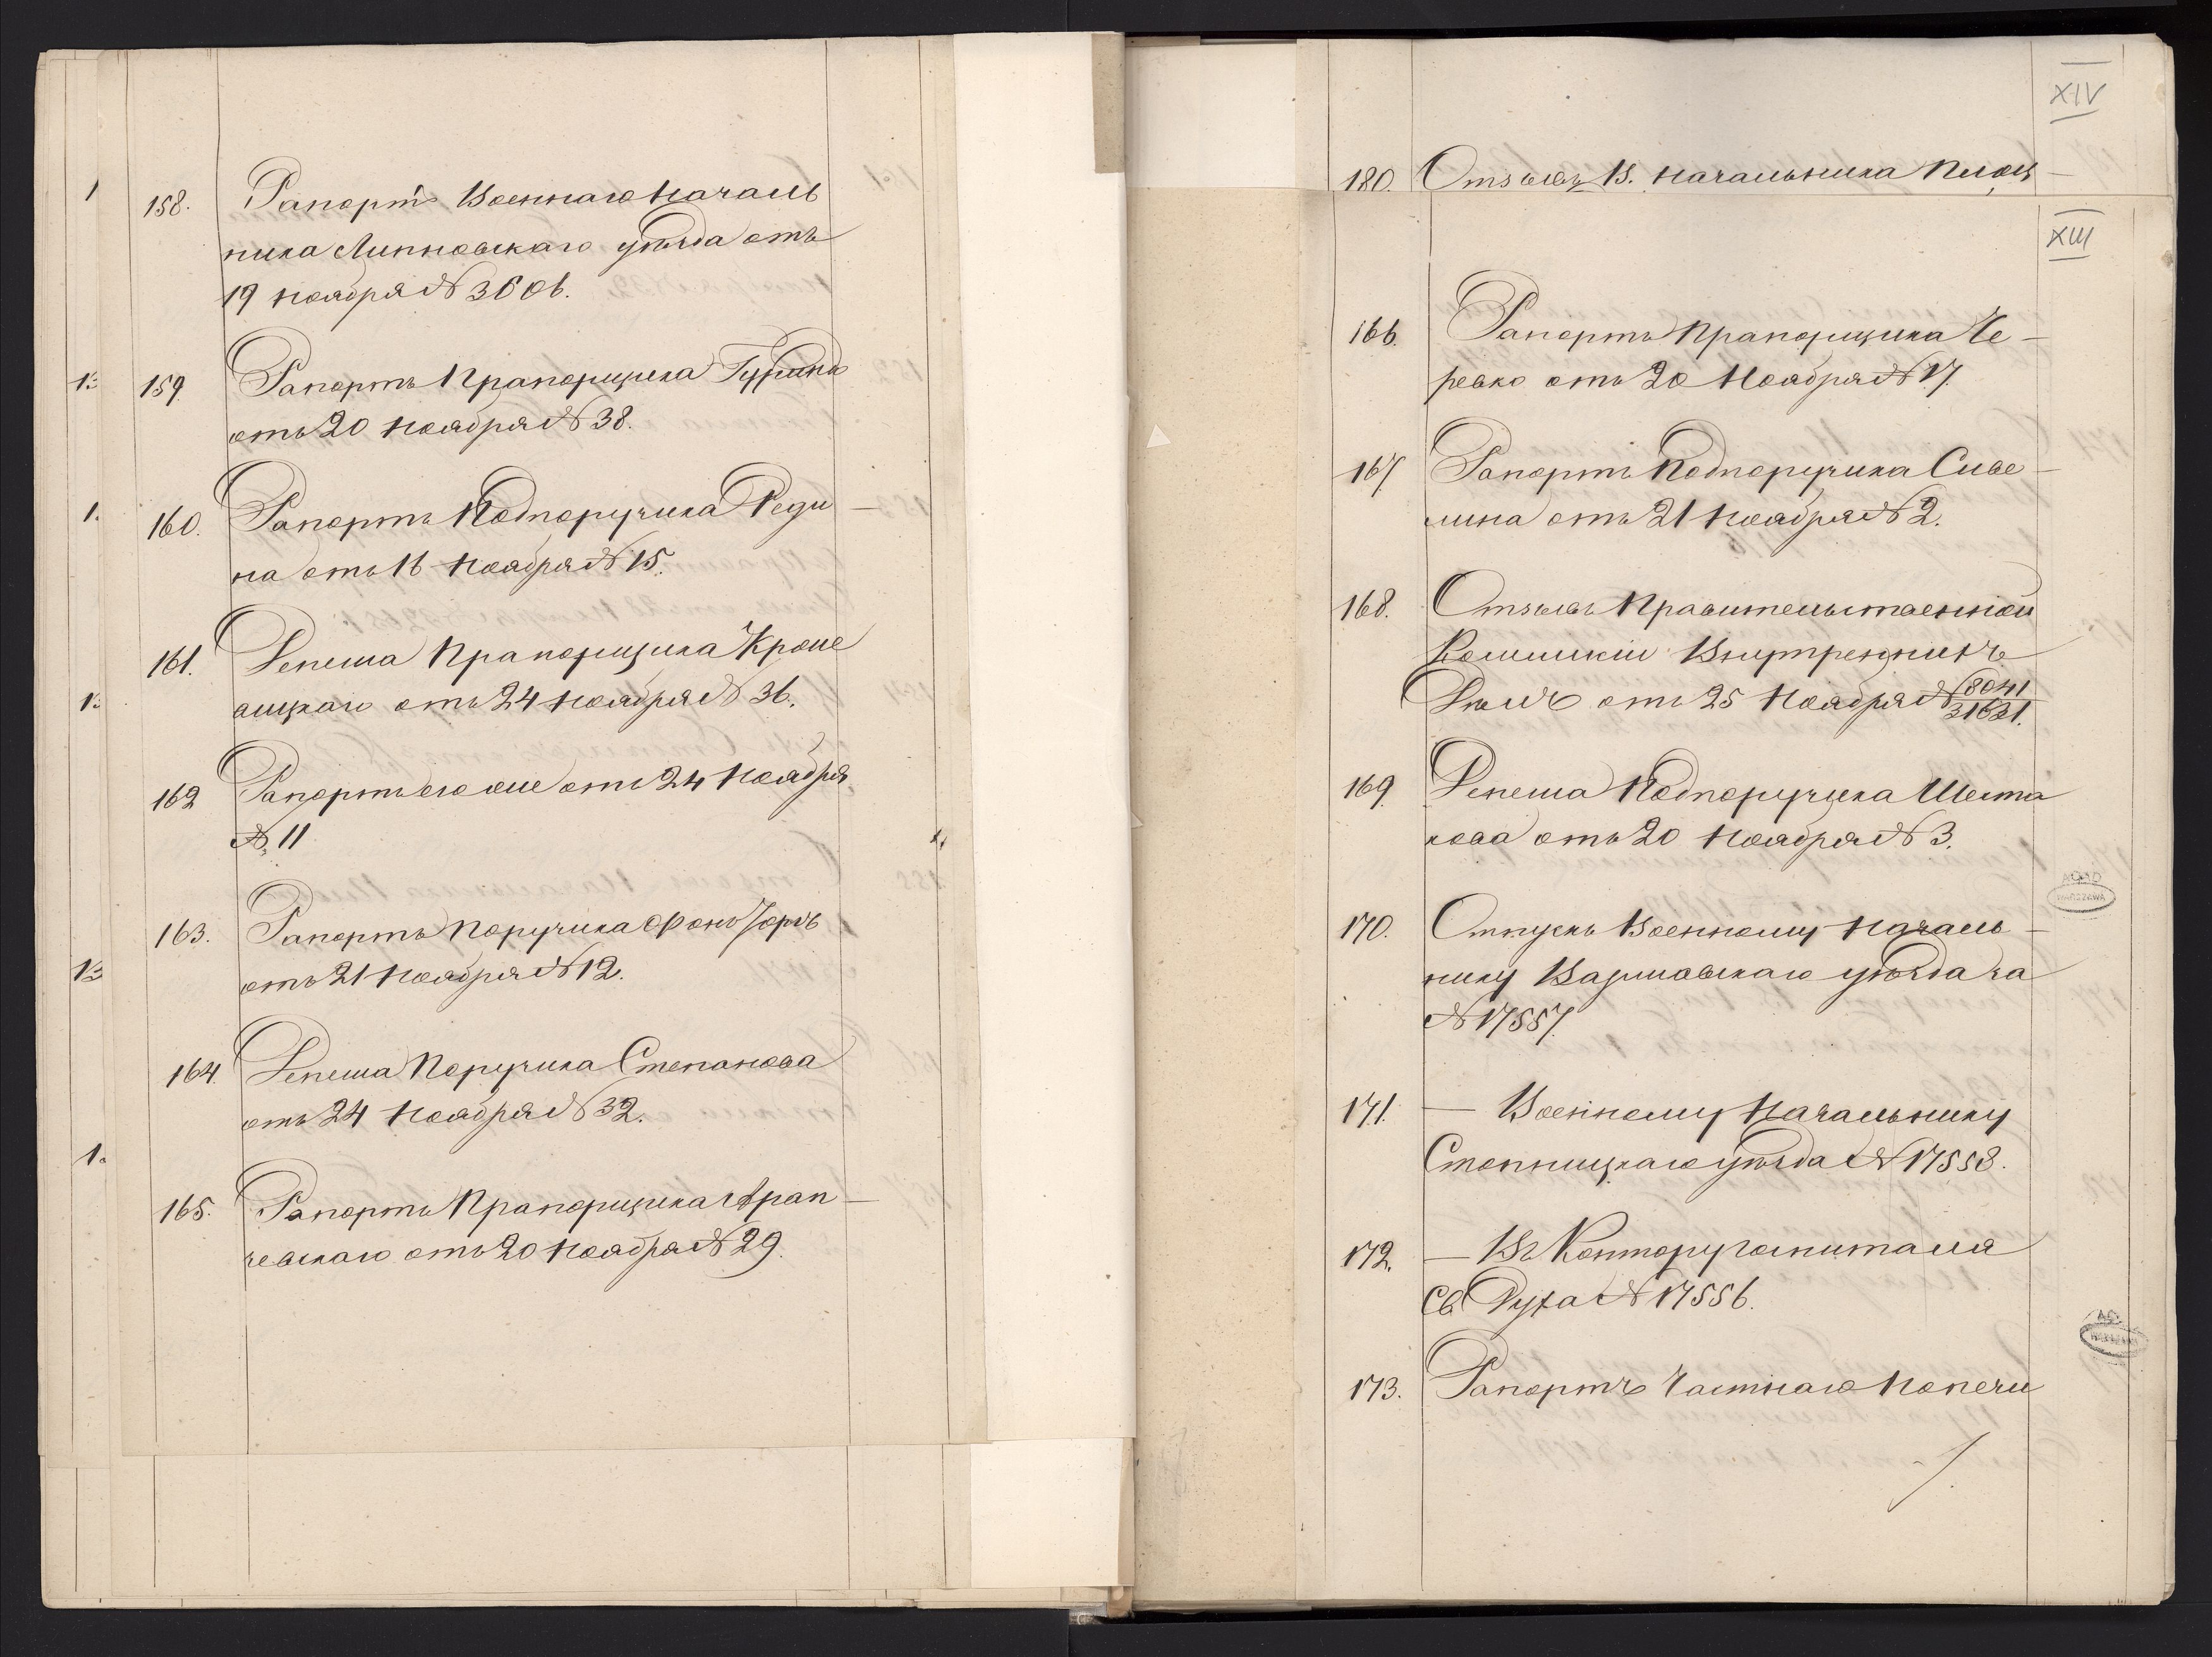 158. Рапортъ Военнаго Началь
ника Липновскаго уѣзда отъ
19 Ноября № 3606.
159 Рапортъ Прапорщика
отъ 20 Ноября № 38.
160. Рапортъ Подпоручика Реди—
на отъ 16 Ноября № 15.
161. Депеша Прапорщика
отъ 24 Ноября № 36.
162 Рапортъ его же отъ 24 Ноября
№ 11
163. Рапортъ Поручика фонъ
отъ 21 Ноября № 12.
164. Депеша Поручика Степанова
отъ 24 Ноября № 32.
165. Рапортъ Прапорщика Арап—
чевскаго отъ 20 Ноября № 29.
XIV
180. Отзывъ В. Начальника Плоц—
XIII
166. Рапортъ Прапорщика Че—
ревко отъ 20 Ноября № 17.
167. Рапортъ Подпоручика Сиве—
лина отъ 21 Ноября № 2.
168. Отзывъ Правительственной
Коммисіи Внутреннихъ
Дѣлъ отъ 25 Ноября № 8041/31631.
169. Депеша Подпоручика Шеста
кова отъ 20 Ноября № 3.
170. Отпускъ Военному Началь—
нику Варшавскаго уѣзда за
№ 17557.
171. — Военному Начальнику
Стопницкаго уѣзда № 17558.
172. — Въ Контору госпиталя
Св. Духа № 17556.
173. Рапортъ Частнаго Попечи
AGAD
WARSZAWA